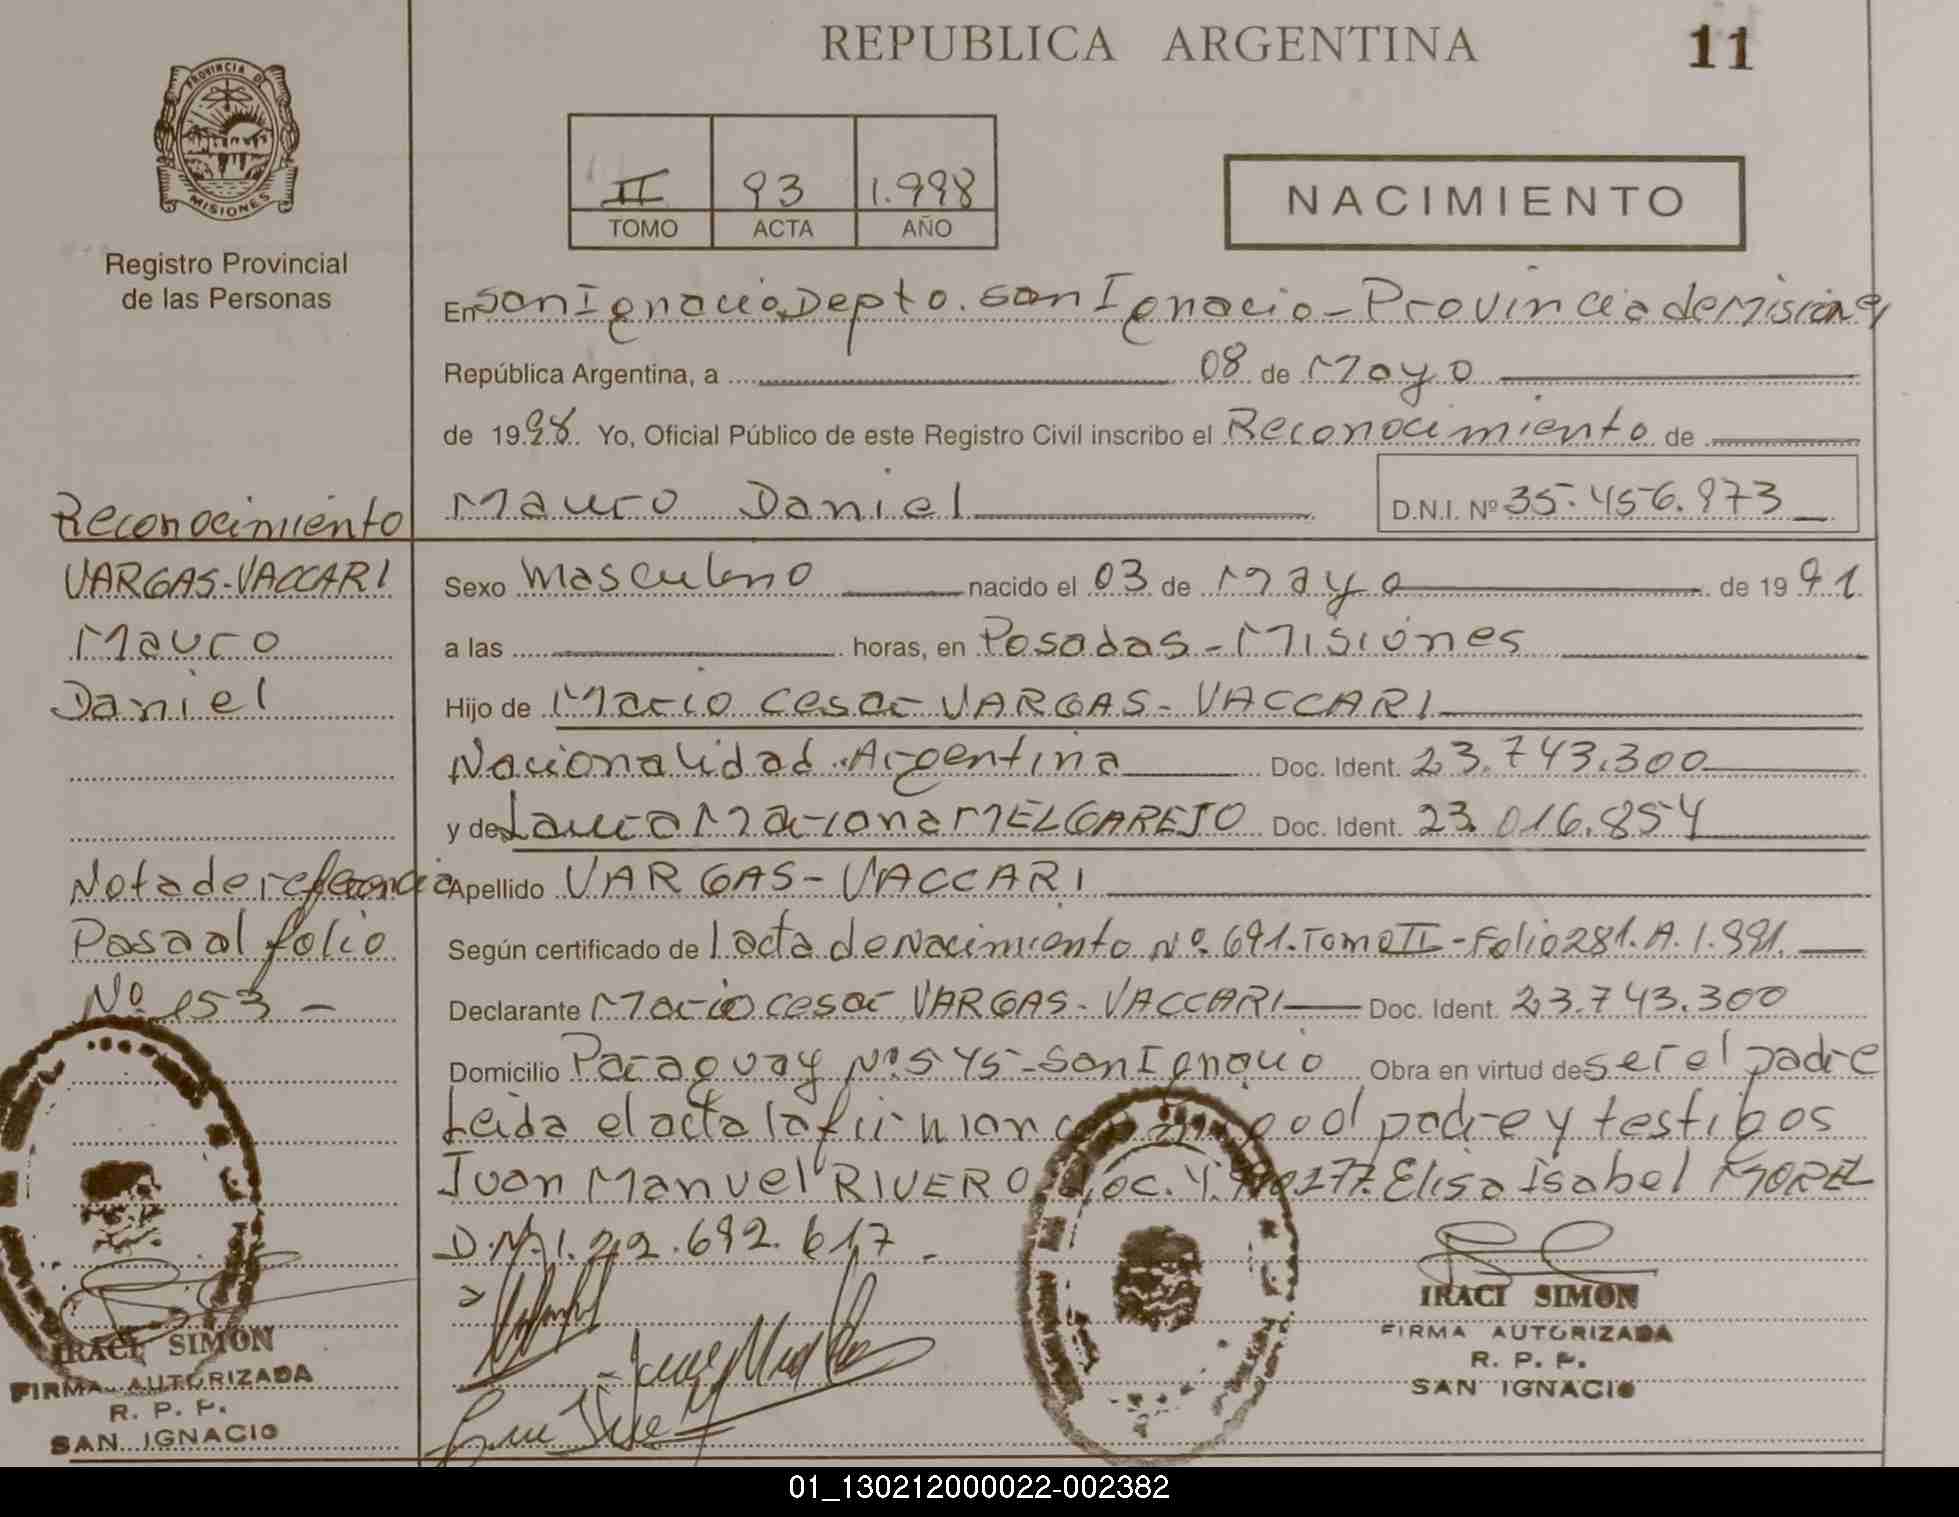 REPUBLICA ARGENTINA
11
PROVINCIA DE
MISIONES
Registro Provincial
de las Personas
II 93 1.998
TOMO ACTA AÑO
NACIMIENTO
En San Ignacio, Depto. San Ignacio - Provincia de Misiones
República Argentina, a 08 de Mayo
de 1998. Yo, Oficial Público de este Registro Civil inscribo el Reconocimiento de
Mauro Daniel D.N.I. Nº 35.456.973
Sexo Masculino nacido el 03 de Mayo de 1991
a las horas, en Posadas - Misiones
Hijo de Mario Cesar VARGAS - VACCARI
Nacionalidad Argentina Doc. Ident. 23.743.300
y de Laura Mariona MELGAREJO Doc. Ident. 23.016.854
Apellido VARGAS - VACCARI
Según certificado de acta de Nacimiento Nº 691. Tomo II - Folio 281. A. 1.991.
Declarante Mario Cesar VARGAS - VACCARI Doc. Ident. 23.743.300
Domicilio Paraguay Nº 545 - San Ignacio Obra en virtud de ser el padre
Leida el acta la firman padre y testigos
Juan Manuel RIVERO Elisa Isabel MOREL
D.N.I. 22.692.617
IRACI SIMON
FIRMA AUTORIZADA
R. P. P.
SAN IGNACIO
Reconocimiento
VARGAS - VACCARI
Mauro
Daniel
Nota de referencia
Pasa al folio
Nº 153 -
IRACI SIMON
FIRMA AUTORIZADA
R. P. P.
SAN IGNACIO
01_130212000022-002382